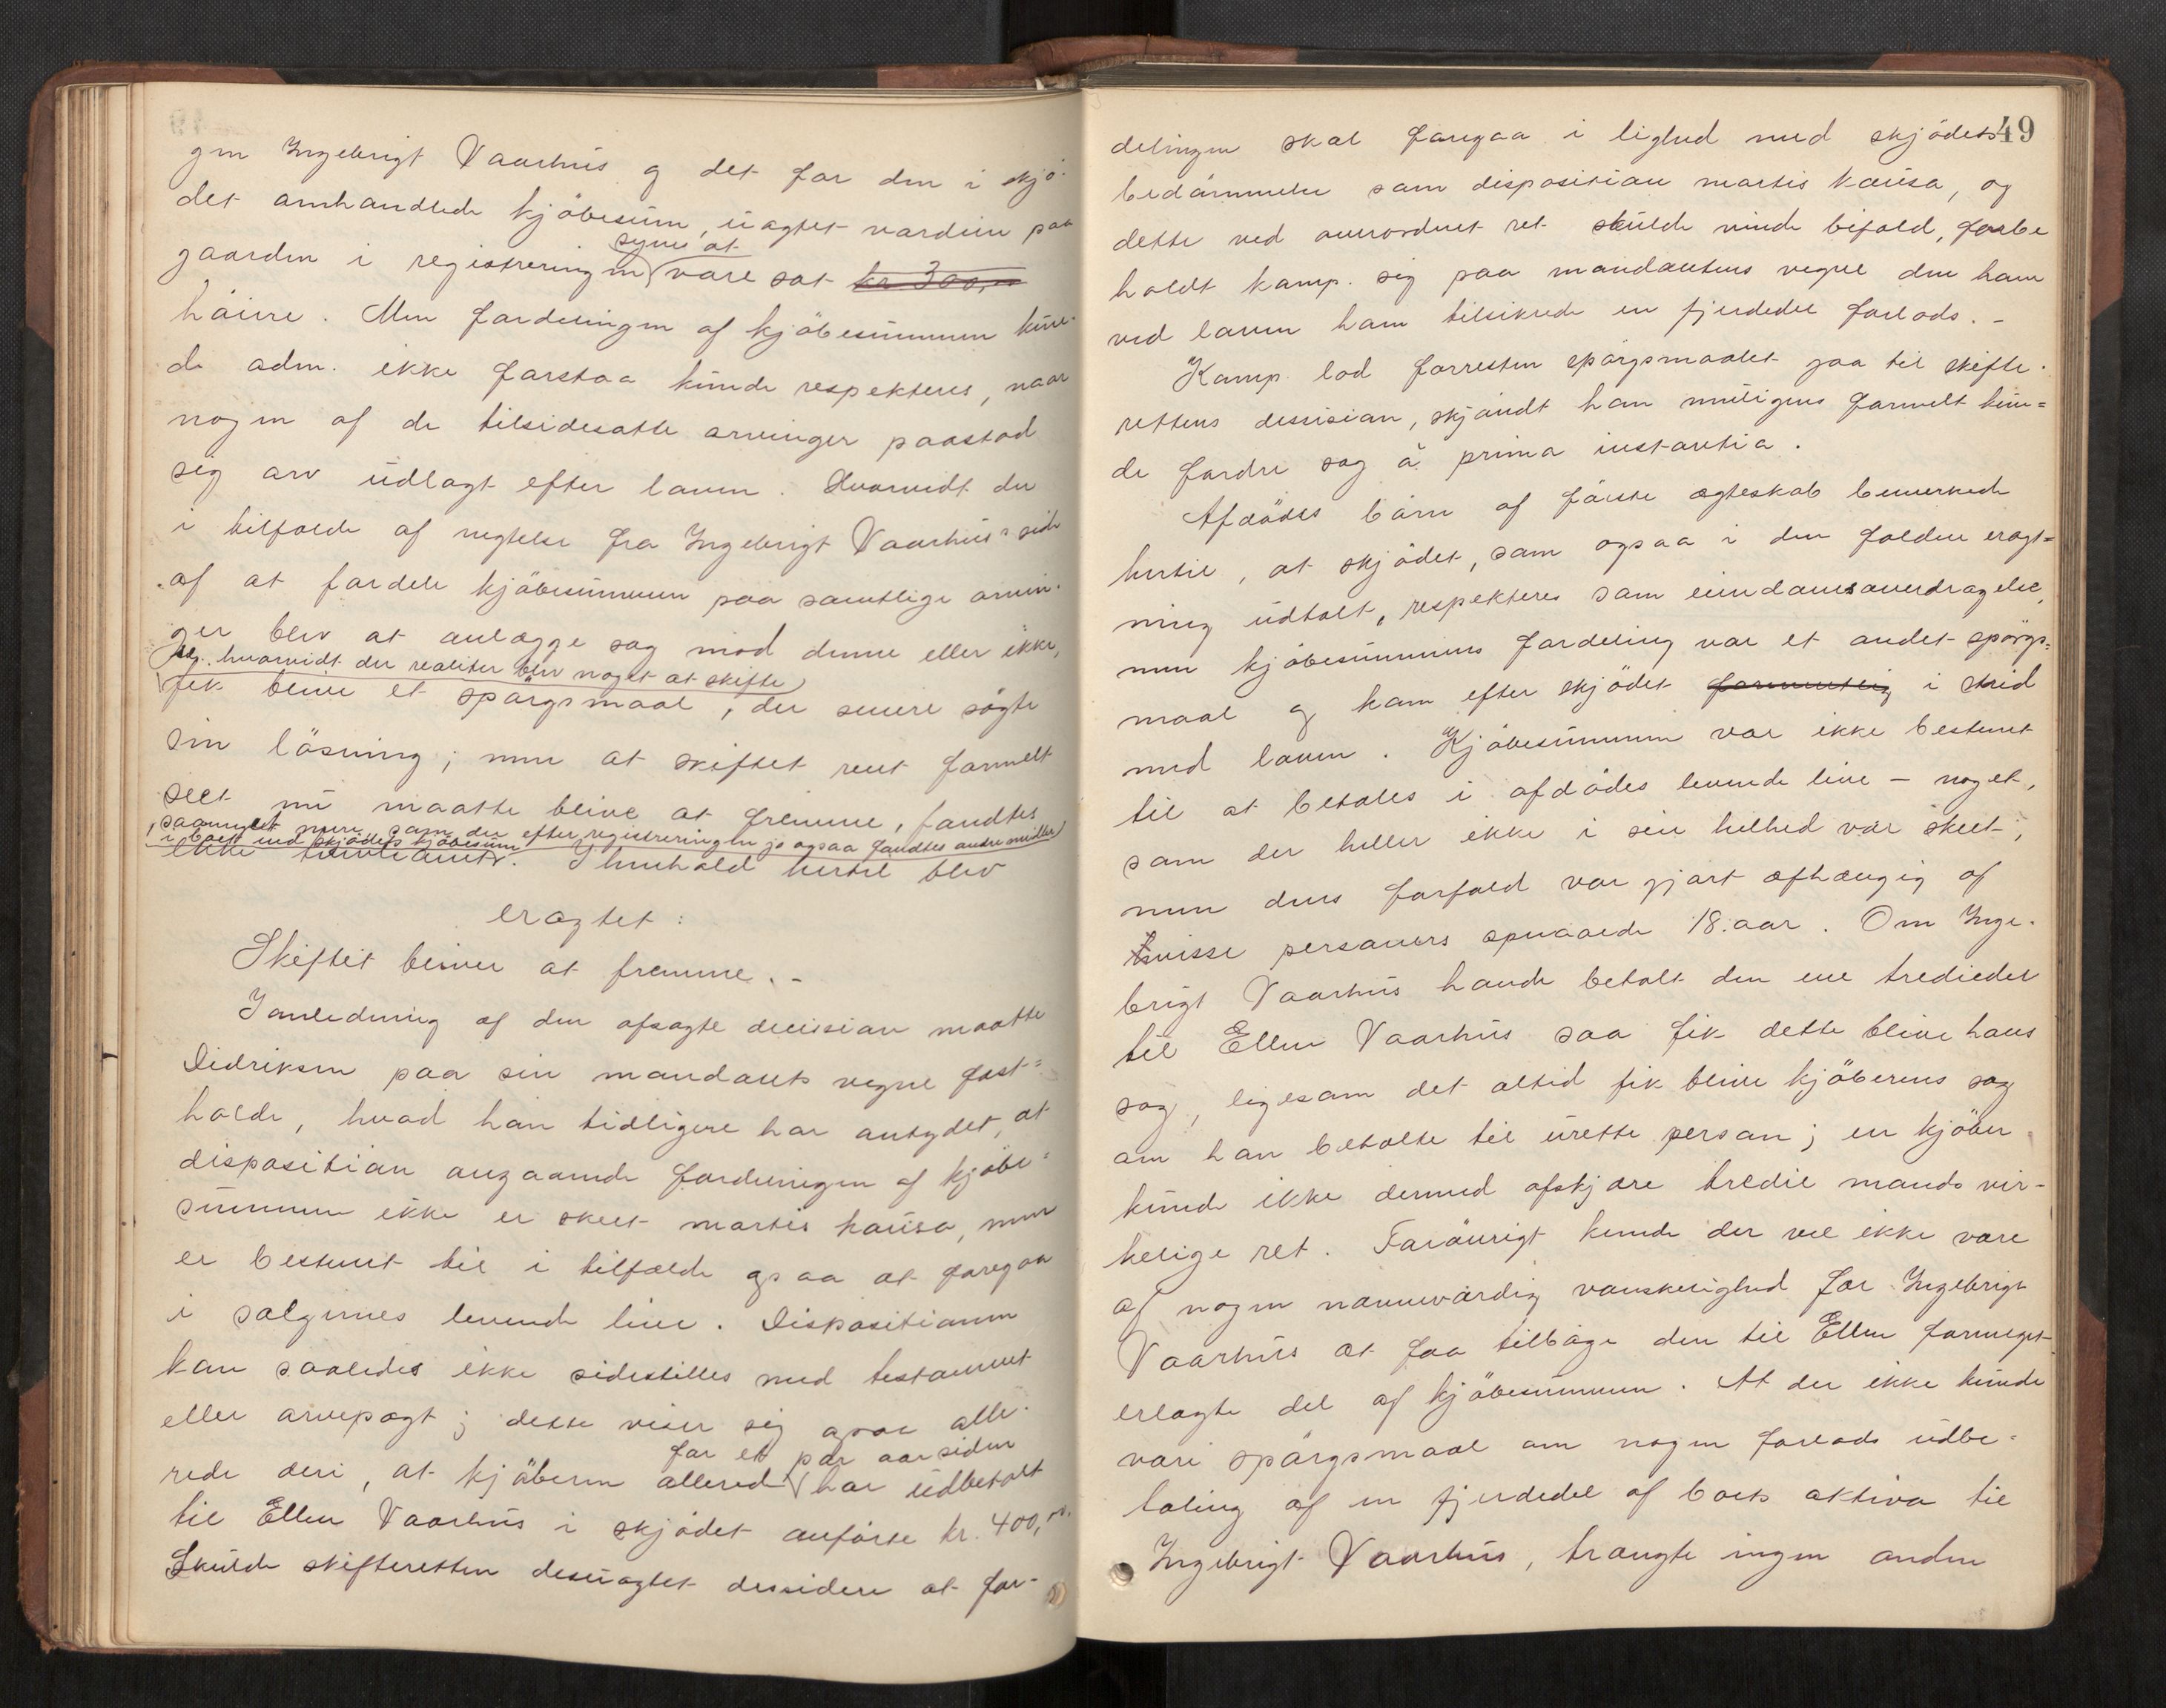 gen Ingebrigt Vaarhus og det for den i skjö-
det omhandlede kjöbesum, uagtet værdien paa
gaarden i registreringen synes at være sat kr 300,00
höiere. Men fordelingen af kjöbesummen kun-
de adm. ikke forstaa kunde respekteres, naar
nogen af de tilsidesatte arvinger paastod
sig arv udlagt efter loven. Hvorvidt der
i tilfælde af negtelse fra Ingebrigt Vaarhus's side
af at fordele kjöbesummen paa samtlige arvin-
ger blev at anlægge sag mod denne eller ikke,
hvorvidt der realiter blev noget at skifte
fik blive et spörgsmaal, der senere sögte
sin lösning; men at skiftet rent formelt
seet nu maatte blive at fremme, fandtes
saameget mere som der efter registreringen jo ogsaa fandtes andre midler
i boet end skjödets kjöbesum
ikke tvivlsomt. I henhold hertil blev
eragtet:
Skiftet bliver at fremme. -
I anledning af den afsagte decission maatte
Didriksen paa sin mandants vegne fast=
holde, hvad han tidligere har antydet, at
disposition angaaende fordelingen af kjöbe=
summen ikke er skeet mortis kausa, men
er bestemt til i tilfælde ogsaa at foregaa
i sælgernes levende live. Dispositionen
kan saaledes ikke sidestilles med testament
eller arvepagt; dette viser sig ogsaa alle-
rede deri, at kjöberen allerede for et par aar siden har udbetalt
til Ellen Vaarhus i skjödet anförte kr. 400,00.
Skulde skifteretten desuagtet dessidere at for-
49
delingen skal foregaa i lighed med skjödets
bedömmelse som disposition mortis kausa, og
dette ved overordnet ret skulde vinde bifald, forbe
holdt Kamp. sig paa mandantens vegne den ham
ved loven ham tilsikrede en fjerdedel forlods. -
Kamp. lod forresten spörgsmaalet gaa til skifte-
rettens dessision, skjöndt han muligens formelt kun=
de fordre sag à prima instantia.
Afdödes börn af förste ægteskab bemerkede
hertil, at skjödet, som ogsaa i den faldne eragt=
ning udtalt, respekteres som eiendomsoverdragelse,
men kjöbesummens fordeling var et andet spörgs=
maal og kom efter skjödet formentlig i strid
med loven. Kjöbesummen var ikke bestemt
til at betales i afdödes levende live - noget,
som der heller ikke i sin helhed var skeet;
men dens forfald var gjort afhængig af
visse personers opnaaede 18. aar. Om Inge-
brigt Vaarhus havde betalt den ene trediedel
til Ellen Vaarhus saa fik dette blive hans
sag, ligesom det altid fik blive kjöberens sag
om han betalte til urette person; en kjöber
kunde ikke dermed afskjære tredie mands vir-
kelige ret. Foröurigt kunde der vel ikke være
af nogen nævneværdig vanskelighed for Ingebrigt
Vaarhus at faa tilbage den til Ellen formeget
erlagte del af kjöbesummen. At der ikke kunde
være spörgsmaal om nogen forlods udbe-
taling af en fjerdedel af boets aktiva til
Ingebrigt Vaarhus, trængte ingen anden